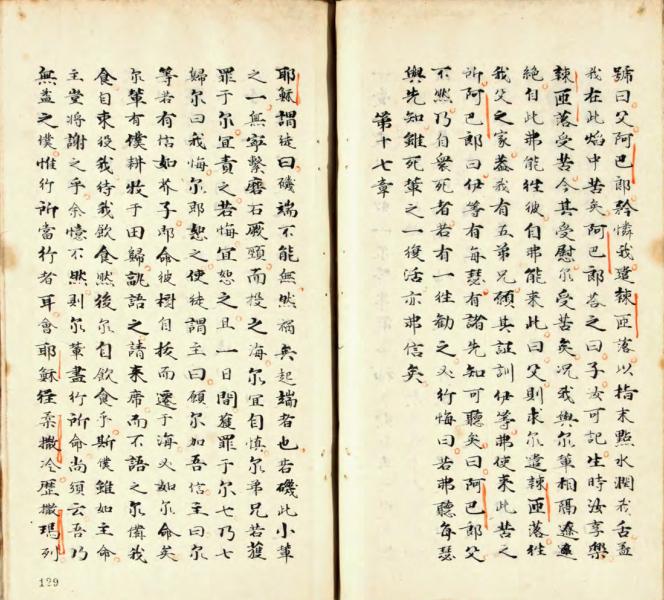 號曰父阿巴郎矜憐我遣辣匝落以指末點水潤我舌盖
我在此焰中苦矣阿巴郎荅之曰子汝可記生時汝享樂
辣匝落受苦今其受慰尔受苦矣况我與尔軰相隔遼遠
絕自此弗能徃彼自彼弗能來此曰父則求尔遣辣匝落徃
我父之家葢我有五弟兄願其証訓伊等弗使來此苦之
所阿巴郎曰伊等有每瑟有諸先知可聽矣曰阿巴郎父
不然乃自衆死者若有一徃勸之必行悔曰若弗聽每瑟
與先知雖死軰之一復活亦弗信矣
第十七章
耶穌謂徒曰磯端不能無然禍矣起端者也若磯此小軰
之一無寧繫磨石厥頸而投之海尔宜自慎尔弟兄若獲
罪于尔宜責之若悔宜恕之且一日間獲罪于尔七乃七
歸尔曰我悔尔即恕之使徒謂主曰願尔加吾信主曰尔
等若有信如芥子即命彼樹自拔而遷于海必如尔命矣
尔軰有僕耕牧于田歸誂語之請来席而不語之尔備我
食自束後我待我飲食然後尔自飲食乎斯僕雖如主命
主堂將謝之乎余憶不然則尔軰盡行所命尚須云吾乃
無益之僕惟行所當行者耳會耶穌徃柔撒冷歷撒瑪列
129